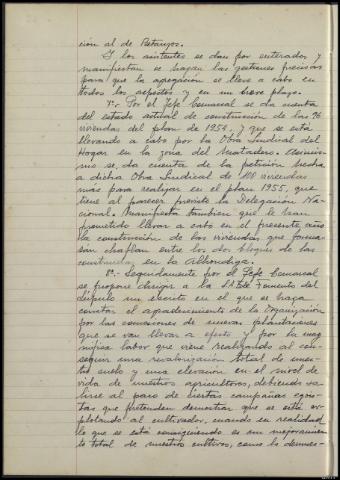 ción al de Betanzos.
Y los asistentes se dan por enterados y
manifiestan se hagan las gestiones precisas
para que la agregación se lleve a cabo en
todos los aspectos y en un breve plazo.
7º.- Por el Jefe Comarcal se da cuenta
del estado actual de construcción de las 96
viviendas del plan de 1954, y que se está
llevando a cabo por la Obra Sindical del
Hogar en la zona del Matadero. Asimis-
mo se da cuenta de la petición hecha
a dicha Obra Sindical de 100 viviendas
más para realizar en el plan 1955, que
tiene al parecer previsto la Delegación Na-
cional. Manifiesta tambien que le han
prometido llevar a cabo en el presente año
la construcción de las viviendas que forma-
can chaflan entre los dos bloques de las
construidas en la Alhondiga.
8º.- Seguidamente por el Jefe Comarcal
se propone dirigir a la S.A. Fomento del
Lúpulo un escrito en el que se haga
constar el agradecimiento de la Organización
por las concesiones de nuevas plantaciones
que se van llevar a efecto y por la mag-
nífica labor que viene realizando al con-
seguir una revalorización total de nues-
tro suelo y una elevación en el nivel de
vida de nuestros agricultores, debiendo sa-
lirse al paso de ciertas campañas egois-
tas que pretenden demostrar que se está ex-
plotando al cultivador, cuando en realidad
lo que se está consiguiendo es un mejoramien-
to total de nuestros cultivos, como lo demues-